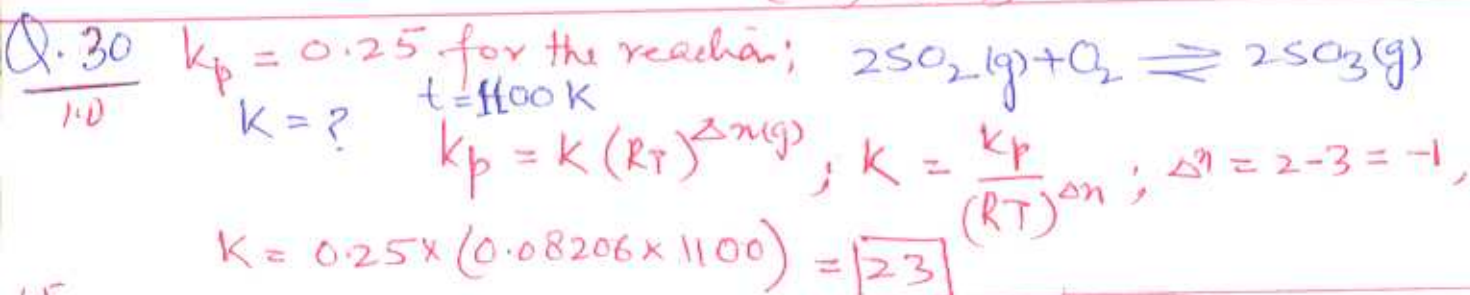 Q.30 kp = 0.25 for the reaction; 2SO2(g)+O2 ⇌ 2SO3(g)
K = ? t = 1100 K
kp = K (RT)^Δn(g) ; K = kp/(RT)^Δn ; Δn = 2-3 = -1,
K = 0.25 x (0.08206 x 1100) = 23